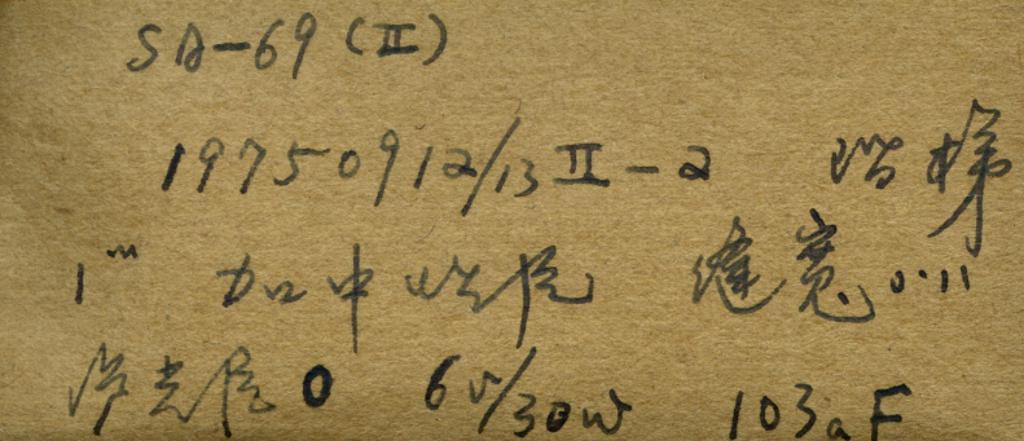 SA-69 (II)
19750912/13 II-2 阶梯
1ᵐ 加中性片 缝宽 0.11
滤光片 0 6V/30W 103aF